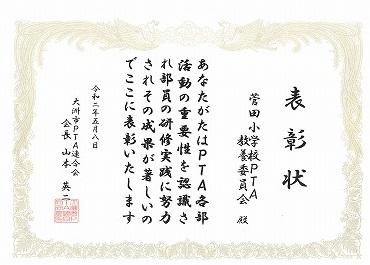 表彰状
菅田小学校PTA
教養委員会 殿
あなたがたはPTA各部
活動の重要性を認識さ
れ部員の研修実践に努力
されその成果が著しいの
でここに表彰いたします
令和二年五月八日
大洲市PTA連合会
会長 山本 英二